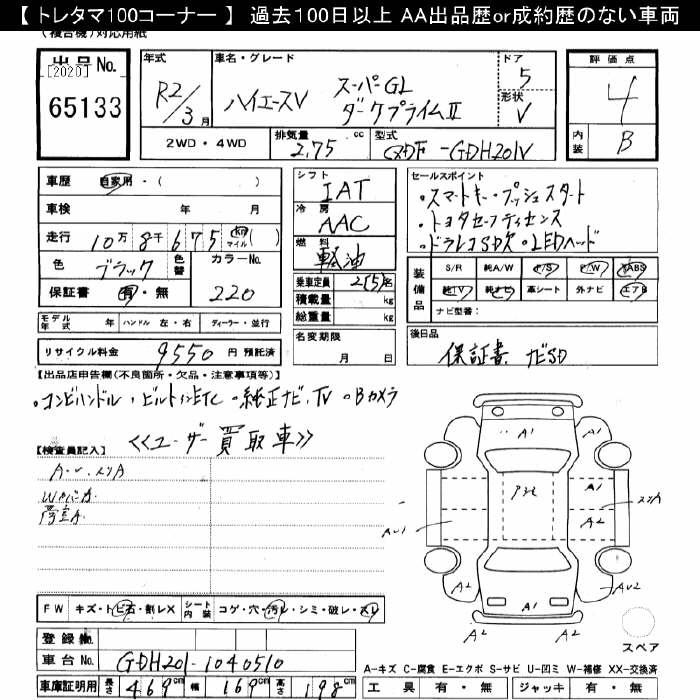 【 トレタマ100コーナー 】 過去100日以上 AA出品歴or成約歴のない車両
(複合機)対応用紙
出品No.
[2020]
65133
年式
R2/3月
車名・グレード
ハイエースV スーパーGL
ダークプライムⅡ
ドア
5
形状
V
評価点
4
内装
B
2WD・4WD
排気量
2.75 cc
型式
QDF-GDH201V
車歴 自家用・( )
車検 年 月
走行 10万8千675 km マイル ( )
色 ブラック 色替
カラーNo.
220
保証書 有・無
モデル年式 年 ハンドル 左・右 ディーラー・並行
リサイクル料金 9550 円 預託済
シフト
IAT
冷房
AAC
燃料
軽油
乗車定員 2(5)名
積載量 kg
総重量 kg
名変期限
月 日
セールスポイント
・スマートキー・プッシュスタート
・トヨタセーフティセンス
・ドラレコSD欠・LEDヘッド
装備品
S/R 純A/W P/S P/W ABS
純TV 純ナビ 革シート 外ナビ エアB
ナビ型番:
後日品
保証書 ナビSD
【出品店申告欄(不良箇所・欠品・注意事項等)】
・コンビハンドル・ビルトインETC・純正ナビ、TV・Bカメラ
≪ユーザー買取車≫
【検査員記入】
A-U、スリA
FW キズ・トビ石・割レX シート内装 コゲ・穴・汚レ・シミ・破レ・スレ
登録番号
車台No. GDH201-1040510
車庫証明用 長さ 469cm 幅 169cm 高さ 198cm
A1
A1
A1
A2
スリA
AU1
A2
AU2
A1
A2
A2
スペア
A-キズ C-腐食 E-エクボ S-サビ U-凹ミ W-補修 XX-交換済
工具 有・無 ジャッキ 有・無